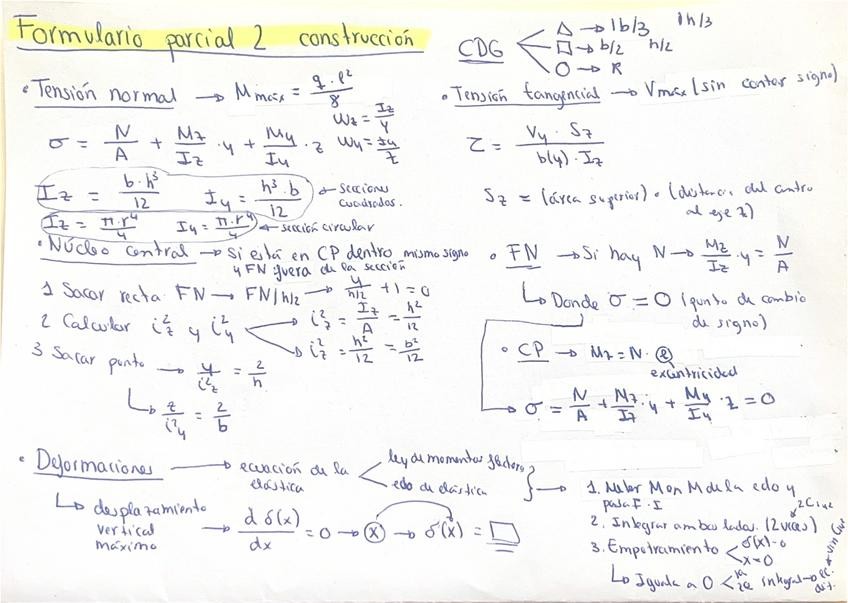 Formulario parcial 2 construcción
CDG △ → 1b/3 1h/3
□ → b/2 h/2
○ → R
• Tensión normal → Mmáx = q · l² / 8
Wz = Iz / y
σ = N/A + Mz/Iz · y + My/Iy · z Wy = Iy / z
Iz = b·h³ / 12 Iy = h³·b / 12 ← secciones cuadradas.
Iz = π·r⁴ / 4 Iy = π·r⁴ / 4 ← sección circular
• Núcleo central → si está en CP dentro mismo signo
y FN fuera de la sección
1 Sacar recta FN → FN/h/2 → y / h/2 + 1 = 0
2 Calcular i²z y i²y → i²z = Iz/A = h²/12
→ i²z = h²/12 = b²/12
3 Sacar punto → y / i²z = 2/h
↳ z / i²y = 2/b
• Tensión tangencial → Vmáx (sin contar signo)
τ = Vy · Sz / b(y) · Iz
Sz = (área superior) · (distancia del centro
al eje z)
• FN → Si hay N → Mz/Iz · y = N/A
↳ Donde σ = 0 (punto de cambio
de signo)
• CP → Mz = N · e
excentricidad
→ σ = N/A + Mz/Iz · y + My/Iy · z = 0
• Deformaciones → ecuación de la elástica
ley de momentos flectores
edo de elástica
↳ desplazamiento
vertical
máximo → d δ(x) / dx = 0 → x → δ(x) = □
→ 1. Meter M en M de la edo y
pasa E · I
2. Integrar ambos lados. (2 veces)
3. Empotramiento δ(x)=0
x=0
↳ Iguala a 0 1a
2a integral →